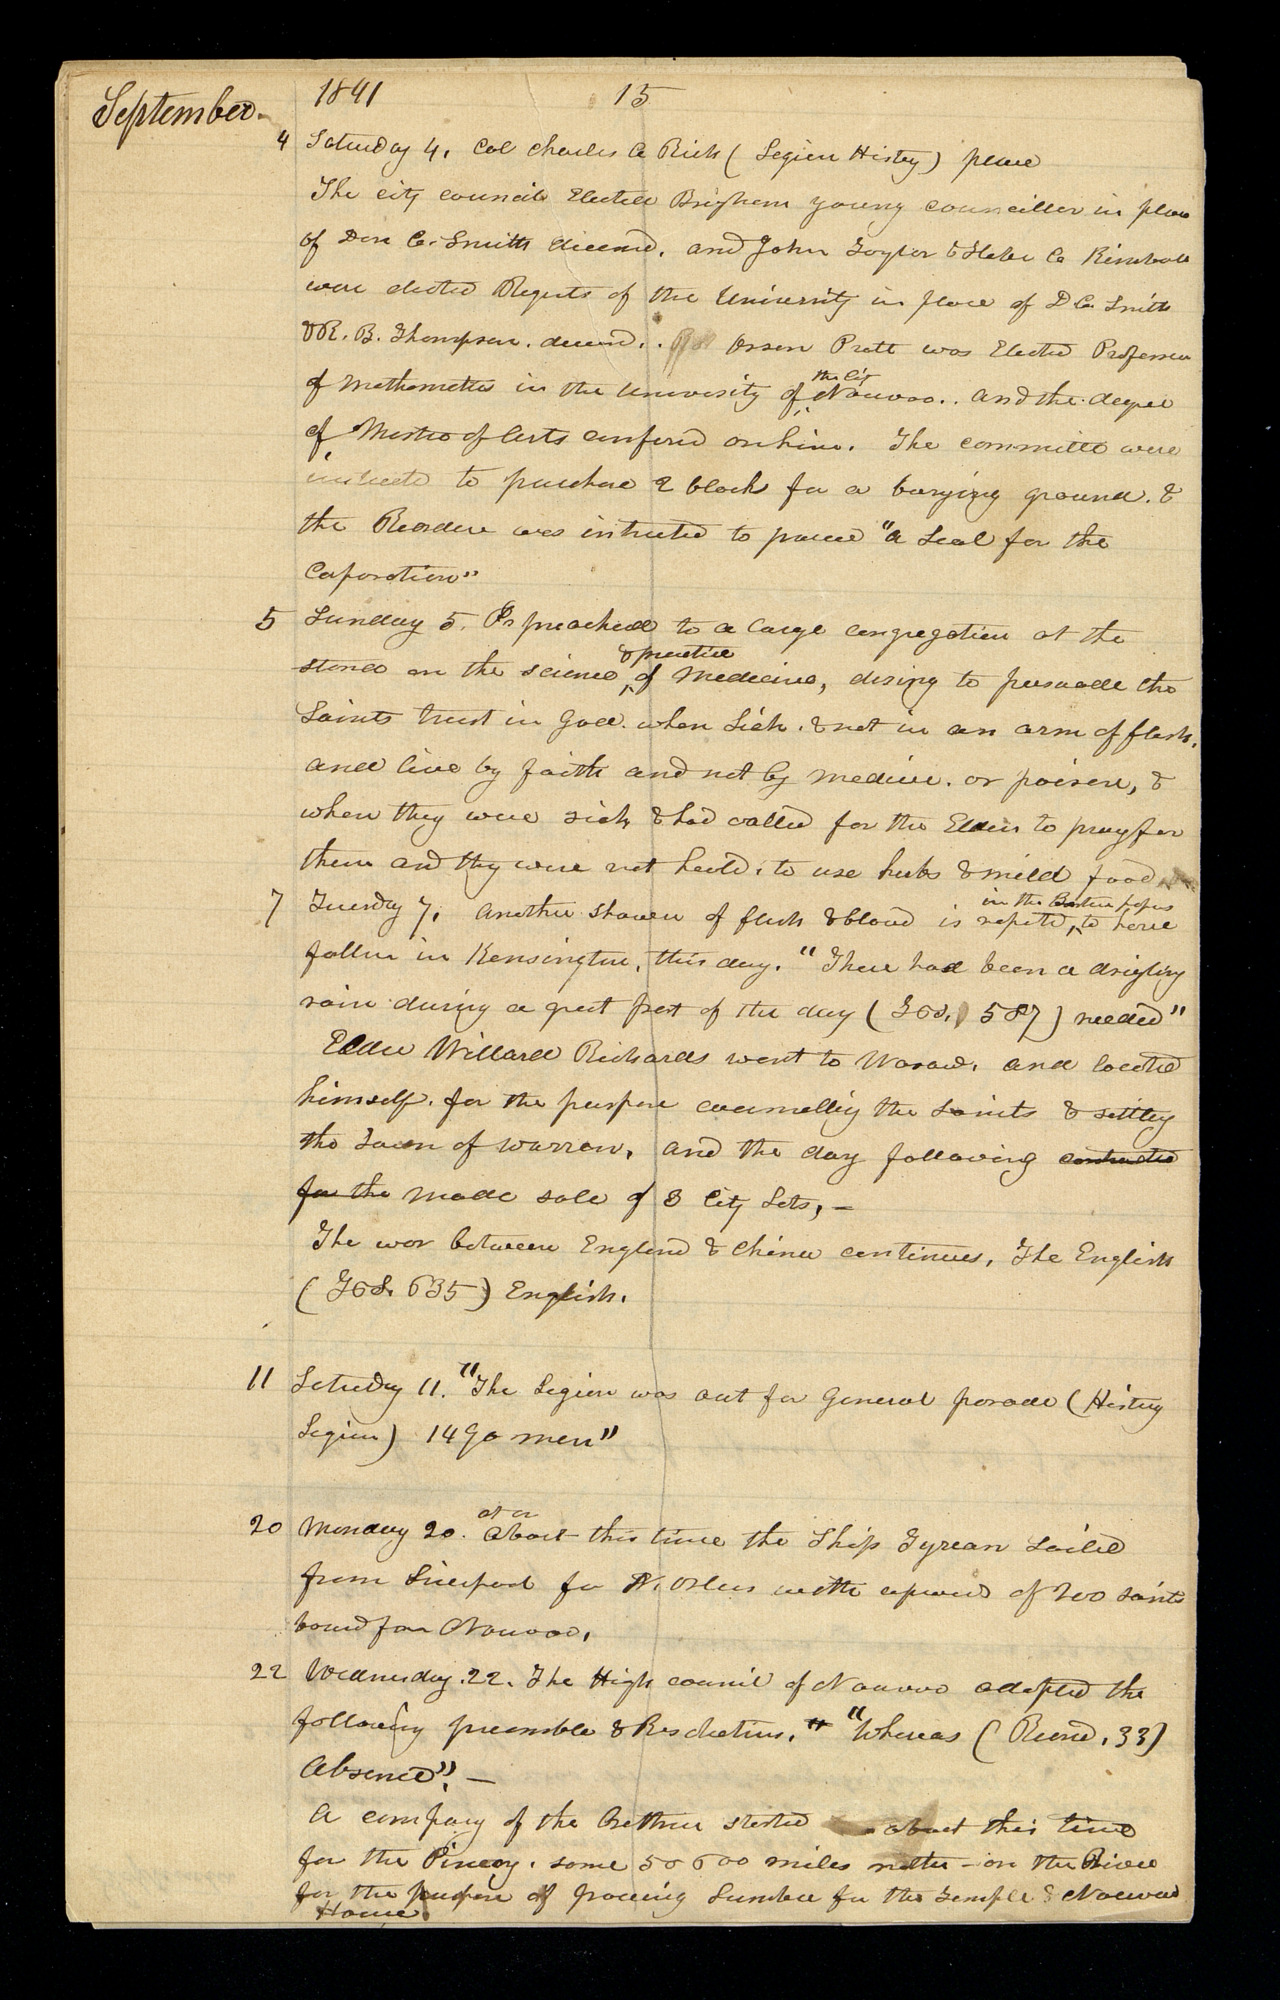 September.
1841 15
4 Saturday 4. Col Charles C Rich (Legion Histy) place
The city council Elected Brigham young councillor in place
of Don C. Smith diceasd. and John Taylor & Heber C Kimball
were elected Regents of the University in place of D C. Smith
& R. B. Thompson. deceasd.. Orson Pratt was Elected Professor
of Mathematics in the University of the City Nauvoo.. and the degree
of Master of Arts conferd on him. The committe were
instructd to purchase 2 blocks for a burying ground. &
the Recorder was intructed to procure "a Seal for the
Corporation"
5 Sunday 5. I preached to a large congregation at the
stand on the science & practice of Medicine, desirig to persuade the
Saints trust in God when Sick. & not in an arm of flesh.
and live by faith and not by medicine. or poison, &
when they were sick & had called for the Elders to pray for
them and they were not heald. to use herbs & mild food
7 Tuesday 7. Another shower of flesh & blood is reported in the Boston papers to have
fallen in Kensington, this day. "There had been a drizling
rain during a great part of the day (T&S. 587) needed"
Elder Willard Richards went to Warsaw. and located
himself. for the purpose councellig the Saints & settlig
the Town of Warren, and the day following contracted
for the made sale of 8 City Lots, –
The war between England & China continues, The English
(T&S. 635) English.
11 Saturday 11. "The Legion was out for General parade (History
Legion) 1490 men"
20 Monday 20. at or About this time the Ship Tyrean sailed
from Liverpool for N. Orleans with upwards of 200 saints
bound for Nauvoo.
22 Wednesday 22. The High council of Nauvoo adopted the
following preamble & Resolutions. " "Whereas (Record, 33)
Absence". –
A company of the Brethren started about this time
for the Pinery. some 5 or 600 miles north – on the River
for the purpose of procuring Lumber for the Temple & Nauvoo
House.